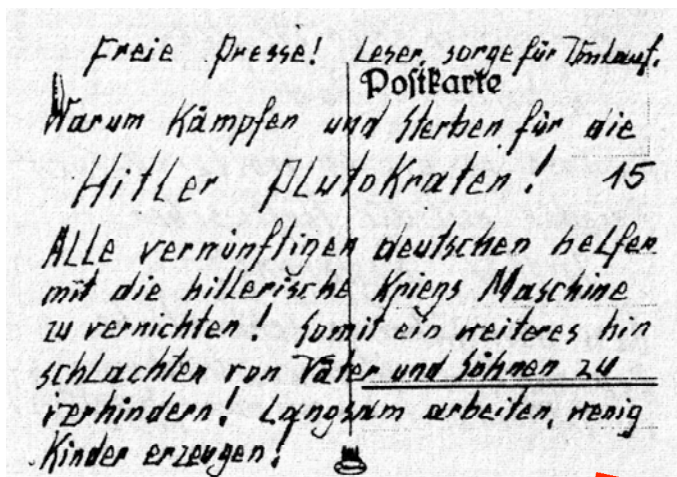 Freie Presse! Leser, sorge für Umlauf.
Postkarte
Warum Kämpfen und Sterben für die
Hitler Plutokraten! 15
Alle vernünftigen deutschen helfen
mit die hitlerische Kriegs Maschine
zu vernichten! Somit ein weiteres hin
schlachten von Väter und Söhnen zu
verhindern! Langsam arbeiten, wenig
Kinder erzeugen!